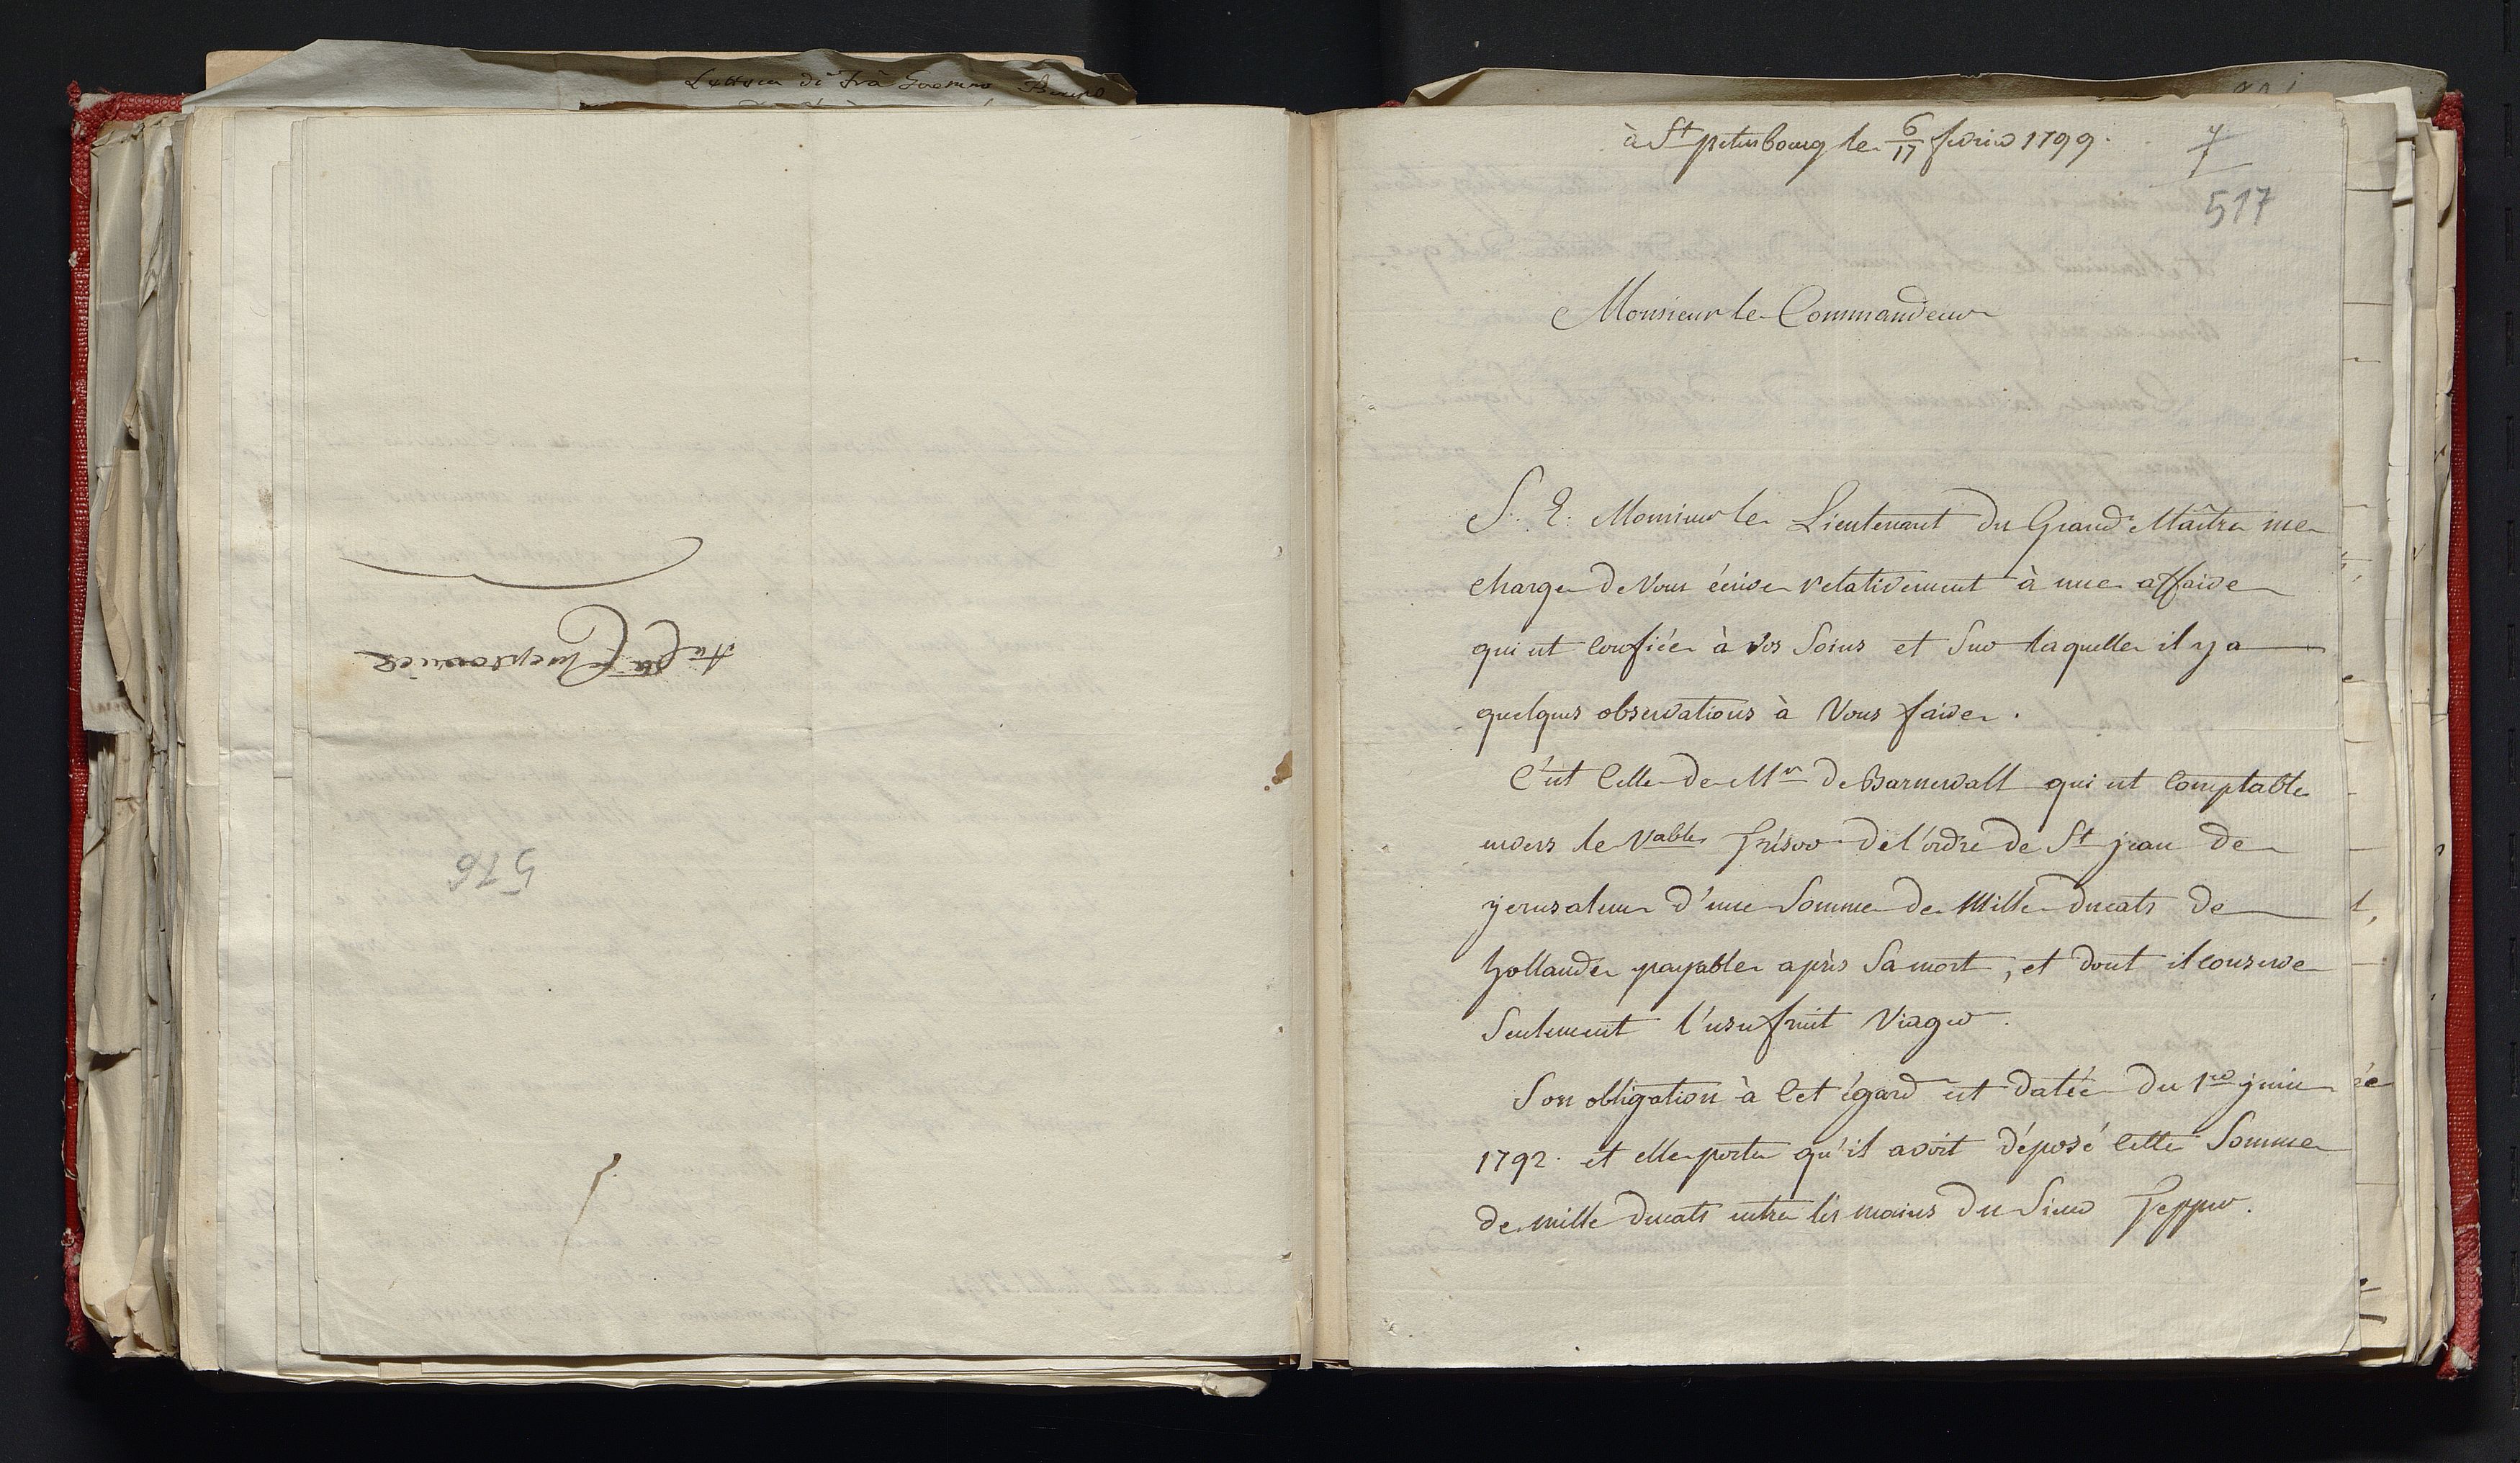 Lettera di Frà
à St petersbourg le 6/17 fevrier 1799.
7
517
Monsieur le Commandeur
S. E. Monsieur le Lieutenant du Grand Maître me
charge de Vous écrire relativement à une affaire
qui est confiée à vos Soins et Sur laquelle il y a
quelques observations à Vous faire.
C'est Celle de Mr de Barnewall qui est Comptable
envers le Vable Trésor de l'ordre de St jean de
jerusalem d'une Somme de Mille ducats de
hollande payable après Sa mort, et dont il conserve
Seulement l'usufruit Viager.
Son obligation à Cet égard est datée du 1er juin
1792. et elle porte qu'il avoit déposé Cette Somme
de mille ducats entre les mains du Sieur Tepper.
576